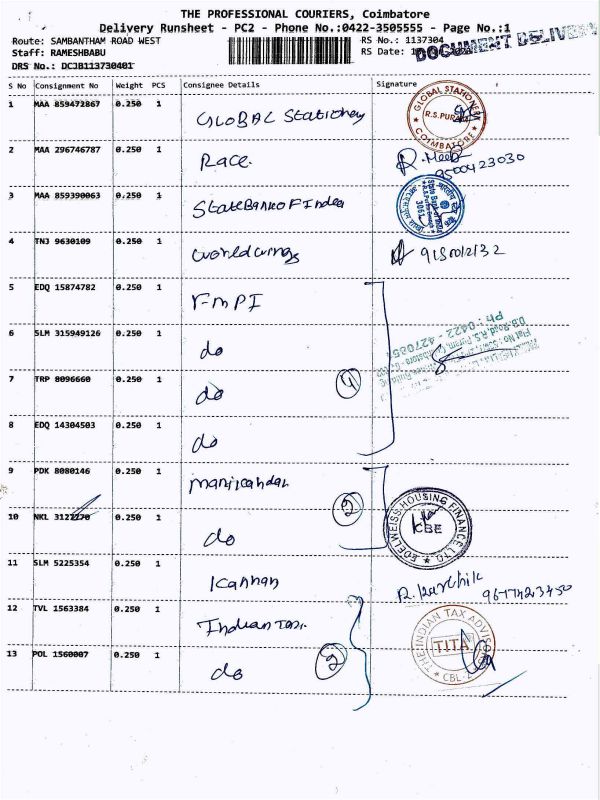 THE PROFESSIONAL COURIERS, Coimbatore
Delivery Runsheet - PC2 - Phone No.:0422-3505555 - Page No.:1
Route: SAMBANTHAM ROAD WEST RS No.: 1137304
Staff: RAMESHBABU RS Date:
DOCUMENT DELIVE
DRS No.: DCJB113730401
S No Consignment No Weight PCS Consignee Details Signature
1 MAA 859472867 0.250 1 GLOBAL Stationey
GLOBAL STATIONERY R.S.PURAM COIMBATORE
2 MAA 296746787 0.250 1 Race.
9500423030
3 MAA 859390063 0.250 1 StateBankOFIndea
4 TNJ 9630109 0.250 1 worldwings
5 EDQ 15874782 0.250 1 r-mPI
Ph : 0422 -
6 SLM 315949126 0.250 1 do
7 TRP 8096660 0.250 1 do 4
8 EDQ 14304503 0.250 1 do
9 PDK 8080146 0.250 1 manikandan
10 NKL 0.250 1 do 2
EDELWEISS HOUSING FINANCE LTD. CBE
11 SLM 5225354 0.250 1 Kannan
R. Karthik
12 TVL 1563384 0.250 1 Indian Tax.
THE INDIAN TAX ADVISOR TITA CBE-2
13 POL 1560007 0.250 1 do 2